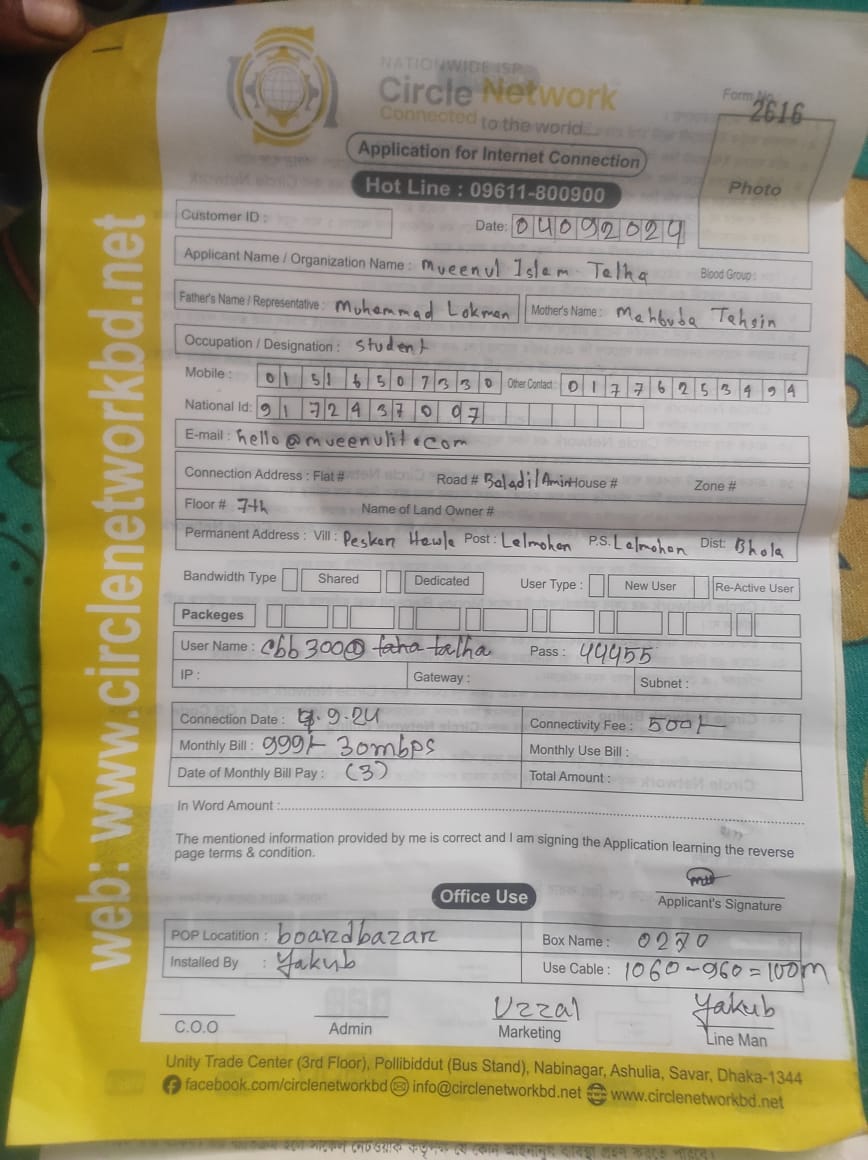 NATIONWIDE ISP
Circle Network
Connected to the world...
Form No.
2616
Application for Internet Connection
Hot Line : 09611-800900
Photo
Customer ID :
Date: 04092024
Applicant Name / Organization Name : Mueenul Islam Talha Blood Group :
Father's Name / Representative : Muhammad Lokman Mother's Name : Mahbuba Tahsin
Occupation / Designation : Student
Mobile : 01516507330 Other Contact : 01776253494
National Id: 9172437097
E-mail : hello@mueenulit.com
Connection Address : Flat # Road # Baladil Amin House # Zone #
Floor # 7th Name of Land Owner #
Permanent Address : Vill : Peskar Hawla Post : Lalmohan P.S. Lalmohan Dist: Bhola
Bandwidth Type Shared Dedicated User Type : New User Re-Active User
Packeges
User Name : cbb300@tahatalha Pass : 44455
IP : Gateway : Subnet :
Connection Date : .9.24 Connectivity Fee : 500/-
Monthly Bill : 999/- 30mbps Monthly Use Bill :
Date of Monthly Bill Pay : (3) Total Amount :
In Word Amount :
The mentioned information provided by me is correct and I am signing the Application learning the reverse
page terms & condition.
Applicant's Signature
Office Use
POP Locatition : boardbazar Box Name : 0270
Installed By : Yakub Use Cable : 1060-960=100m
Uzzal Yakub
C.O.O Admin Marketing Line Man
Unity Trade Center (3rd Floor), Pollibiddut (Bus Stand), Nabinagar, Ashulia, Savar, Dhaka-1344
facebook.com/circlenetworkbd info@circlenetworkbd.net www.circlenetworkbd.net
web: www.circlenetworkbd.net